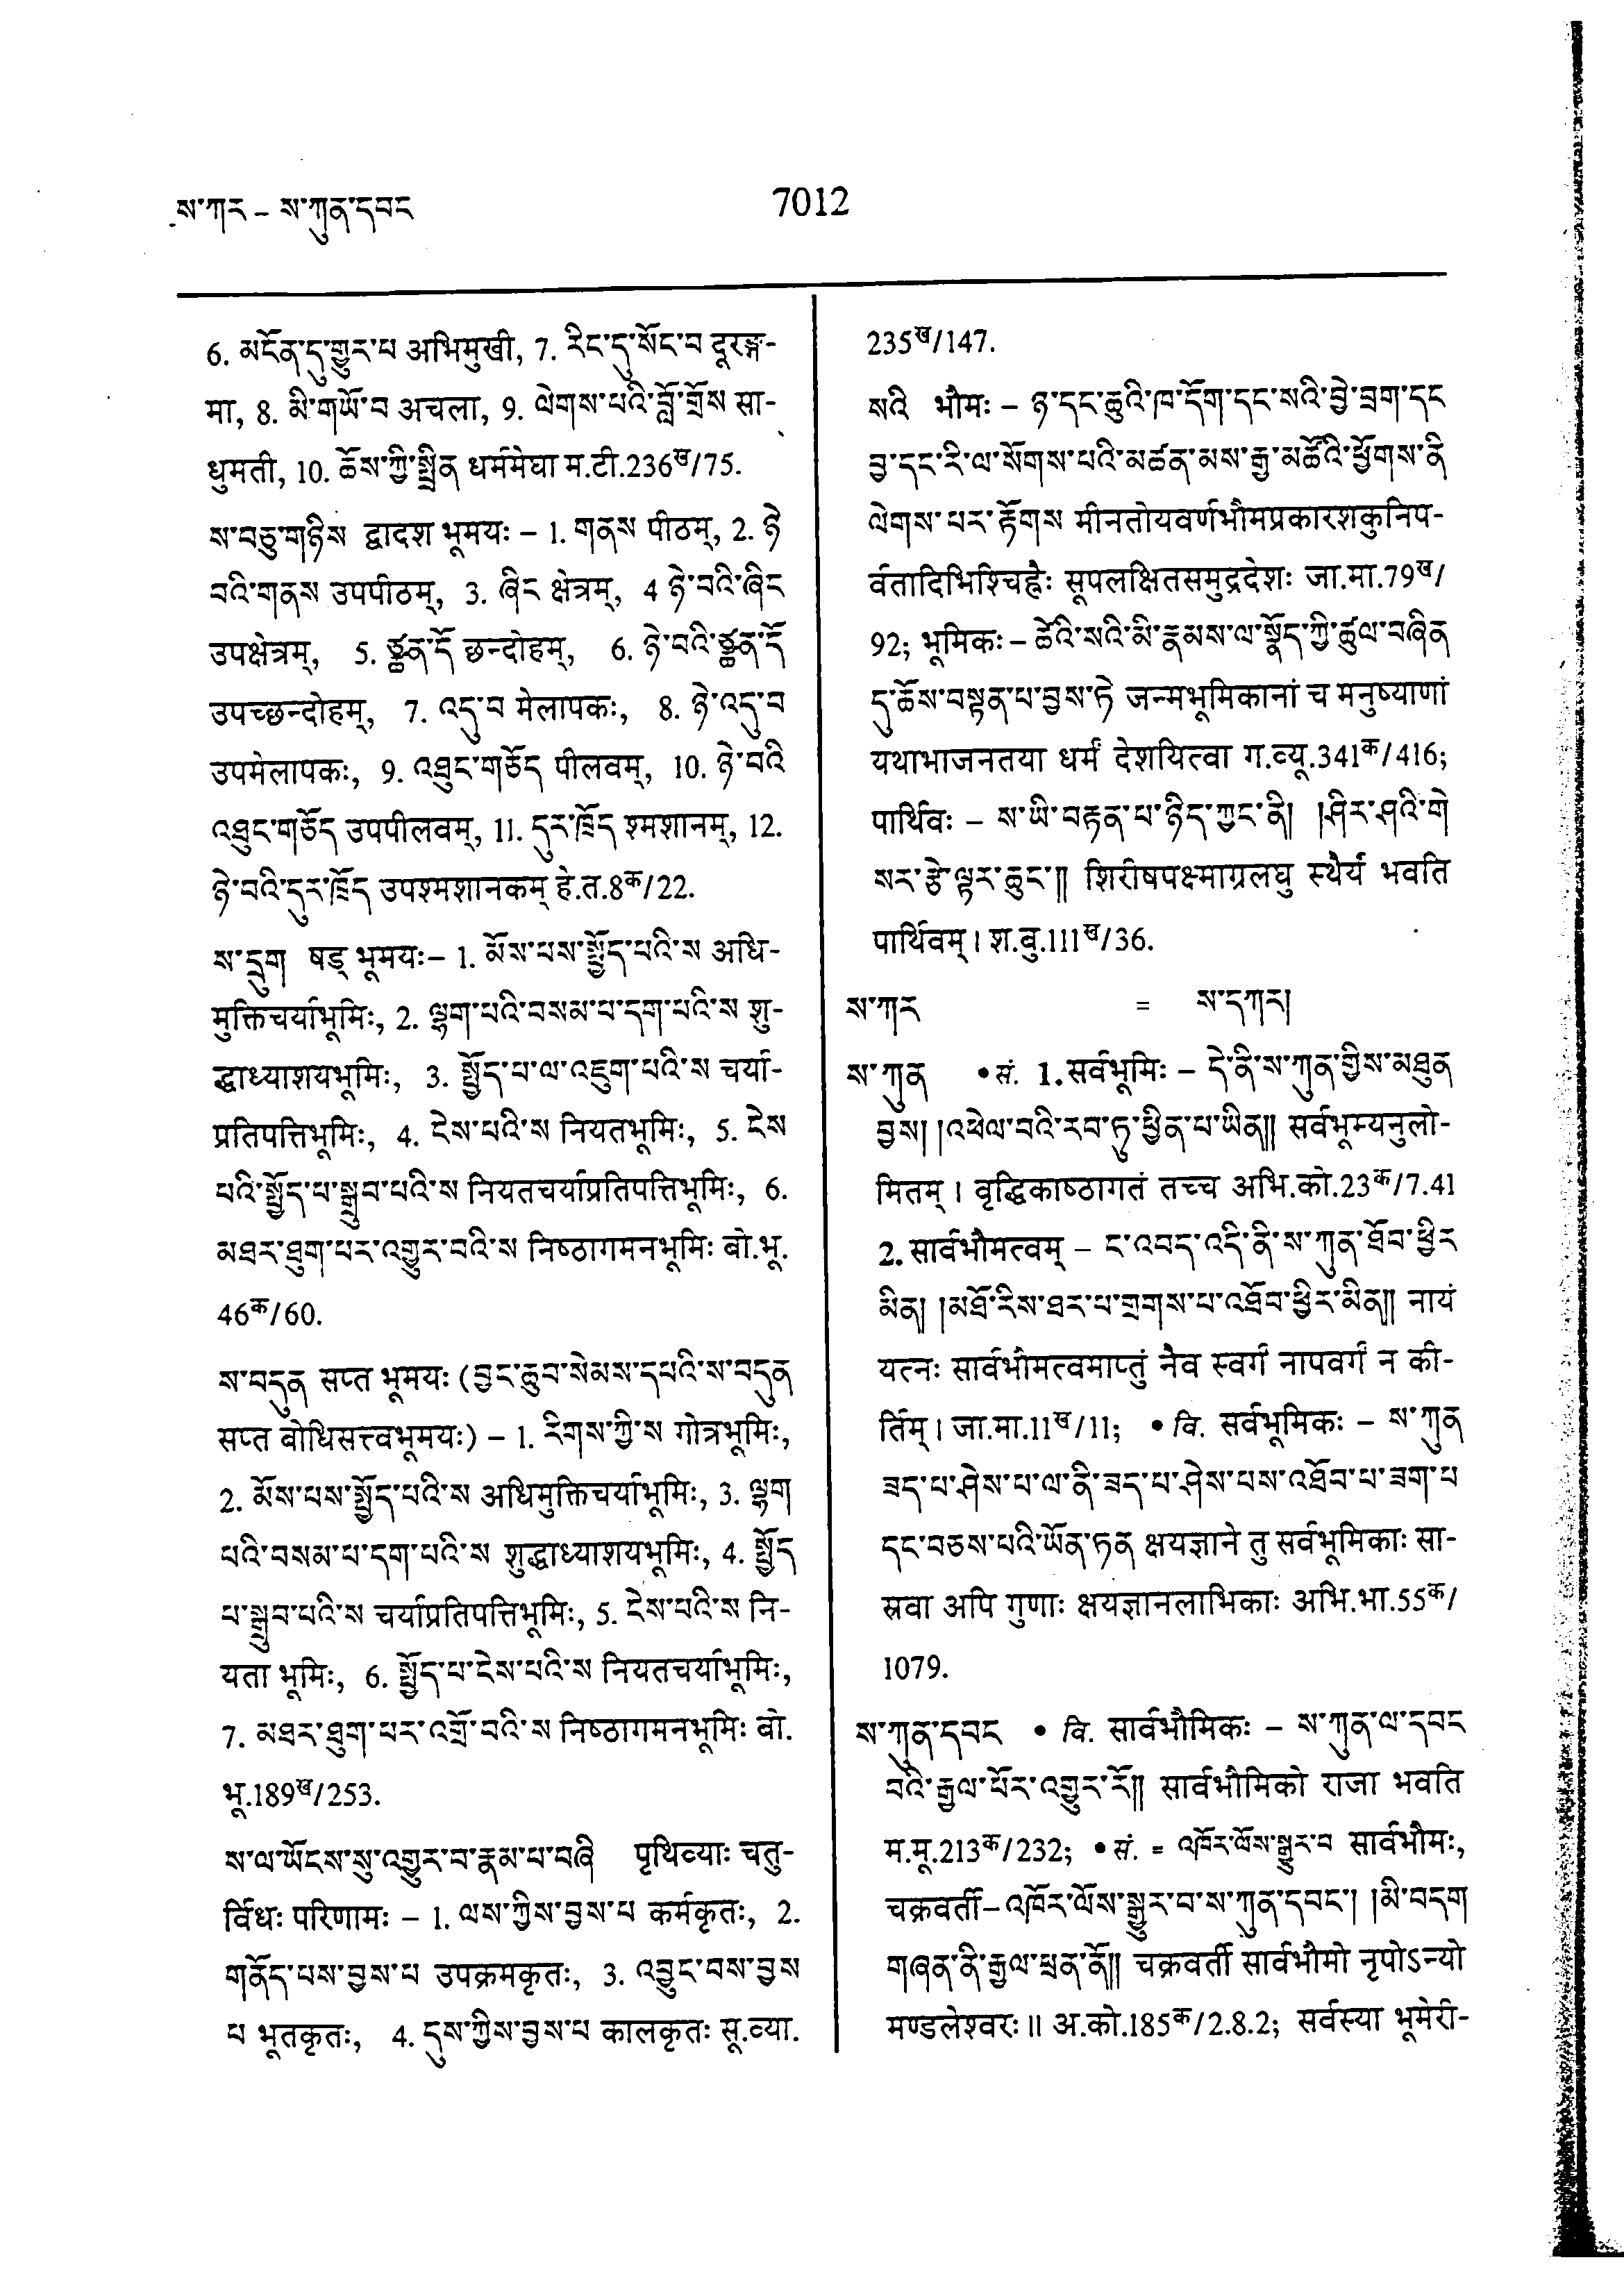 ས་ཀར – ས་ཀུན་དབང
7012
6. མངོན་དུ་གྱུར་པ अभिमुखी, 7. རིང་དུ་སོང་བ दूरङ्ग-
मा, 8. མི་གཡོ་བ अचला, 9. ལེགས་པའི་བློ་གྲོས सा-
धुमती, 10. ཆོས་ཀྱི་སྤྲིན धर्ममेघा म.टी.236ख/75.
ས་བཅུ་གཉིས द्वादश भूमयः – 1. གནས पीठम्, 2. ཉེ
བའི་གནས उपपीठम्, 3. ཞིང क्षेत्रम्, 4 ཉེ་བའི་ཞིང
उपक्षेत्रम्, 5. ཙྪན་དོ छन्दोहम्, 6. ཉེ་བའི་ཙྪན་དོ
उपच्छन्दोहम्, 7. འདུ་བ मेलापकः, 8. ཉེ་འདུ་བ
उपमेलापकः, 9. འཐུང་གཅོད पीलवम्, 10. ཉེ་བའི
འཐུང་གཅོད उपपीलवम्, 11. དུར་ཁྲོད श्मशानम्, 12.
ཉེ་བའི་དུར་ཁྲོད उपश्मशानकम् हे.त.8क/22.
ས་དྲུག षड् भूमयः– 1. མོས་པས་སྤྱོད་པའི་ས अधि-
मुक्तिचर्याभूमिः, 2. ལྷག་པའི་བསམ་པ་དག་པའི་ས शु-
द्धाध्याशयभूमिः, 3. སྤྱོད་པ་ལ་འཇུག་པའི་ས चर्या-
प्रतिपत्तिभूमिः, 4. ངེས་པའི་ས नियतभूमिः, 5. ངེས
པའི་སྤྱོད་པ་སྒྲུབ་པའི་ས नियतचर्याप्रतिपत्तिभूमिः, 6.
མཐར་ཐུག་པར་འགྱུར་བའི་ས निष्ठागमनभूमिः बो.भू.
46क/60.
ས་བདུན सप्त भूमयः (བྱང་ཆུབ་སེམས་དཔའི་ས་བདུན
सप्त बोधिसत्त्वभूमयः) – 1. རིགས་ཀྱི་ས गोत्रभूमिः,
2. མོས་པས་སྤྱོད་པའི་ས अधिमुक्तिचर्याभूमिः, 3. ལྷག
པའི་བསམ་པ་དག་པའི་ས शुद्धाध्याशयभूमिः, 4. སྤྱོད
པ་སྒྲུབ་པའི་ས चर्याप्रतिपत्तिभूमिः, 5. ངེས་པའི་ས नि-
यता भूमिः, 6. སྤྱོད་པ་ངེས་པའི་ས नियतचर्याभूमिः,
7. མཐར་ཐུག་པར་འགྲོ་བའི་ས निष्ठागमनभूमिः बो.
भू.189ख/253.
ས་ལ་ཡོངས་སུ་འགྱུར་བ་རྣམ་པ་བཞི पृथिव्याः चतु-
र्विधः परिणामः – 1. ལས་ཀྱིས་བྱས་པ कर्मकृतः, 2.
གནོད་པས་བྱས་པ उपक्रमकृतः, 3. འབྱུང་བས་བྱས
པ भूतकृतः, 4. དུས་ཀྱིས་བྱས་པ कालकृतः सू.व्या.
235ख/147.
སའི भौमः – ཉ་དང་ཆུའི་ཁ་དོག་དང་སའི་བྱེ་བྲག་དང
བྱ་དང་རི་ལ་སོགས་པའི་མཚན་མས་རྒྱ་མཚོའི་ཕྱོགས་ནི
ལེགས་པར་རྟོགས मीनतोयवर्णभौमप्रकारशकुनिप-
र्वतादिभिश्चिह्नैः सूपलक्षितसमुद्रदेशः जा.मा.79ख/
92; भूमिकः – ཚེའི་སའི་མི་རྣམས་ལ་སྣོད་ཀྱི་ཚུལ་བཞིན
དུ་ཆོས་བསྟན་པ་བྱས་ཏེ जन्मभूमिकानां च मनुष्याणां
यथाभाजनतया धर्मं देशयित्वा ग.व्यू.341क/416;
पार्थिवः – ས་ཡི་བརྟན་པ་ཉིད་ཀྱང་ནི། །ཤིར་ཤའི་གེ
སར་རྩེ་ལྟར་ཆུང་༎ शिरीषपक्ष्माग्रलघु स्थैर्यं भवति
पार्थिवम्। श.बु.111ख/36.
ས་ཀར = ས་དཀར།
ས་ཀུན • सं. 1. सर्वभूमिः – དེ་ནི་ས་ཀུན་གྱིས་མཐུན
བྱས། །འཕེལ་བའི་རབ་ཏུ་ཕྱིན་པ་ཡིན༎ सर्वभूम्यनुलो-
मितम्। वृद्धिकाष्ठागतं तच्च अभि.को.23क/7.41
2. सार्वभौमत्वम् – ང་འབད་འདི་ནི་ས་ཀུན་ཐོབ་ཕྱིར
མིན། །མཐོ་རིས་ཐར་པ་གྲགས་པ་འཐོབ་ཕྱིར་མིན༎ नायं
यत्नः सार्वभौमत्वमाप्तुं नैव स्वर्गं नापवर्गं न की-
र्तिम्। जा.मा.11ख/11; • वि. सर्वभूमिकः – ས་ཀུན
ཟད་པ་ཤེས་པ་ལ་ནི་ཟད་པ་ཤེས་པས་འཐོབ་པ་ཟག་པ
དང་བཅས་པའི་ཡོན་ཏན क्षयज्ञाने तु सर्वभूमिकाः सा-
स्रवा अपि गुणाः क्षयज्ञानलाभिकाः अभि.भा.55क/
1079.
ས་ཀུན་དབང • वि. सार्वभौमिकः – ས་ཀུན་ལ་དབང
བའི་རྒྱལ་པོར་འགྱུར་རོ༎ सार्वभौमिको राजा भवति
म.मू.213क/232; • सं. = འཁོར་ལོས་སྒྱུར་བ सार्वभौमः,
चक्रवर्ती– འཁོར་ལོས་སྒྱུར་བ་ས་ཀུན་དབང་། །མི་བདག
གཞན་ནི་རྒྱལ་ཕྲན་ནོ༎ चक्रवर्ती सार्वभौमो नृपोऽन्यो
मण्डलेश्वरः॥ अ.को.185क/2.8.2; सर्वस्या भूमेरी-